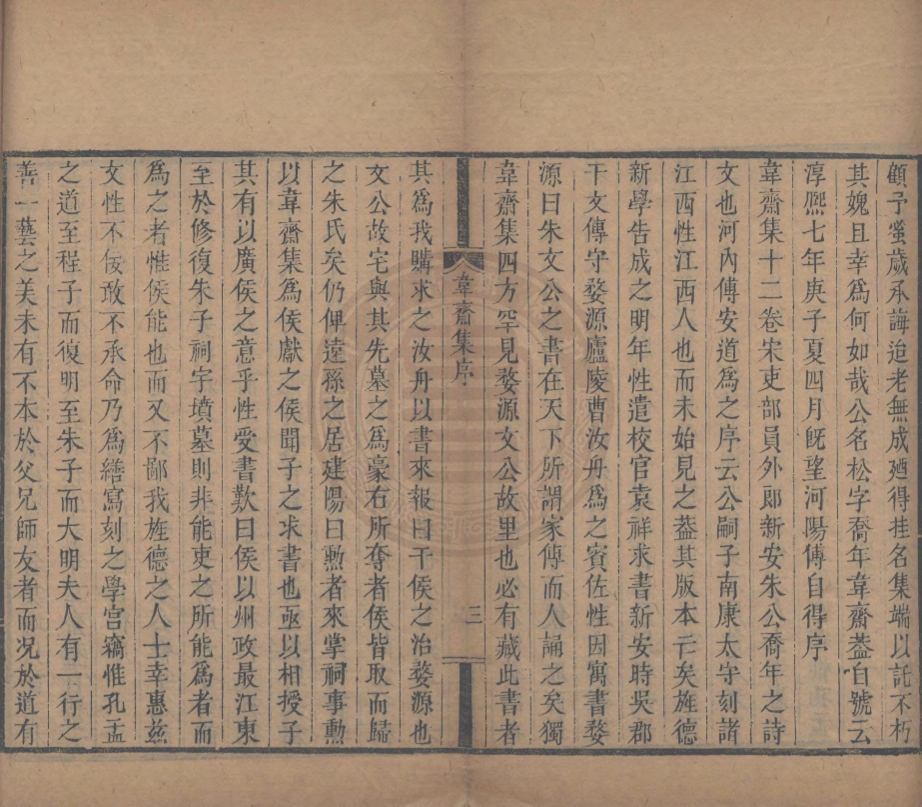 顧予蚤歲承誨迨老無成廼得挂名集端以託不朽
其媿且幸爲何如哉公名松字喬年韋齋葢自號云
淳熈七年庚子夏四月旣望河陽傅自得序
韋齋集十二卷宋吏部員外郎新安朱公喬年之詩
文也河內傅安道爲之序云公嗣子南康太守刻諸
江西性江西人也而未始見之葢其版本亡矣旌德
新學告成之明年性遣校官袁祥求書新安時吳郡
干文傳守婺源廬陵曹汝舟爲之賓佐性因寓書婺
源曰朱文公之書在天下所謂家傳而人誦之矣獨
韋齋集四方罕見婺源文公故里也必有藏此書者
韋齋集序
三
其爲我購求之汝舟以書來報曰干侯之治婺源也
文公故宅與其先墓之爲豪右所奪者侯皆取而歸
之朱氏矣仍俾遠孫之居建陽曰勲者來掌祠事勲
以韋齋集爲侯獻之侯聞子之求書也亟以相授子
其有以廣侯之意乎性受書歎曰侯以州政最江東
至於修復朱子祠宇墳墓則非能吏之所能爲者而
爲之者惟侯能也而又不鄙我旌德之人士幸惠茲
文性不佞敢不承命乃爲繕寫刻之學宫竊惟孔孟
之道至程子而復明至朱子而大明夫人有一行之
善一藝之美未有不本於父兄師友者而况於道有